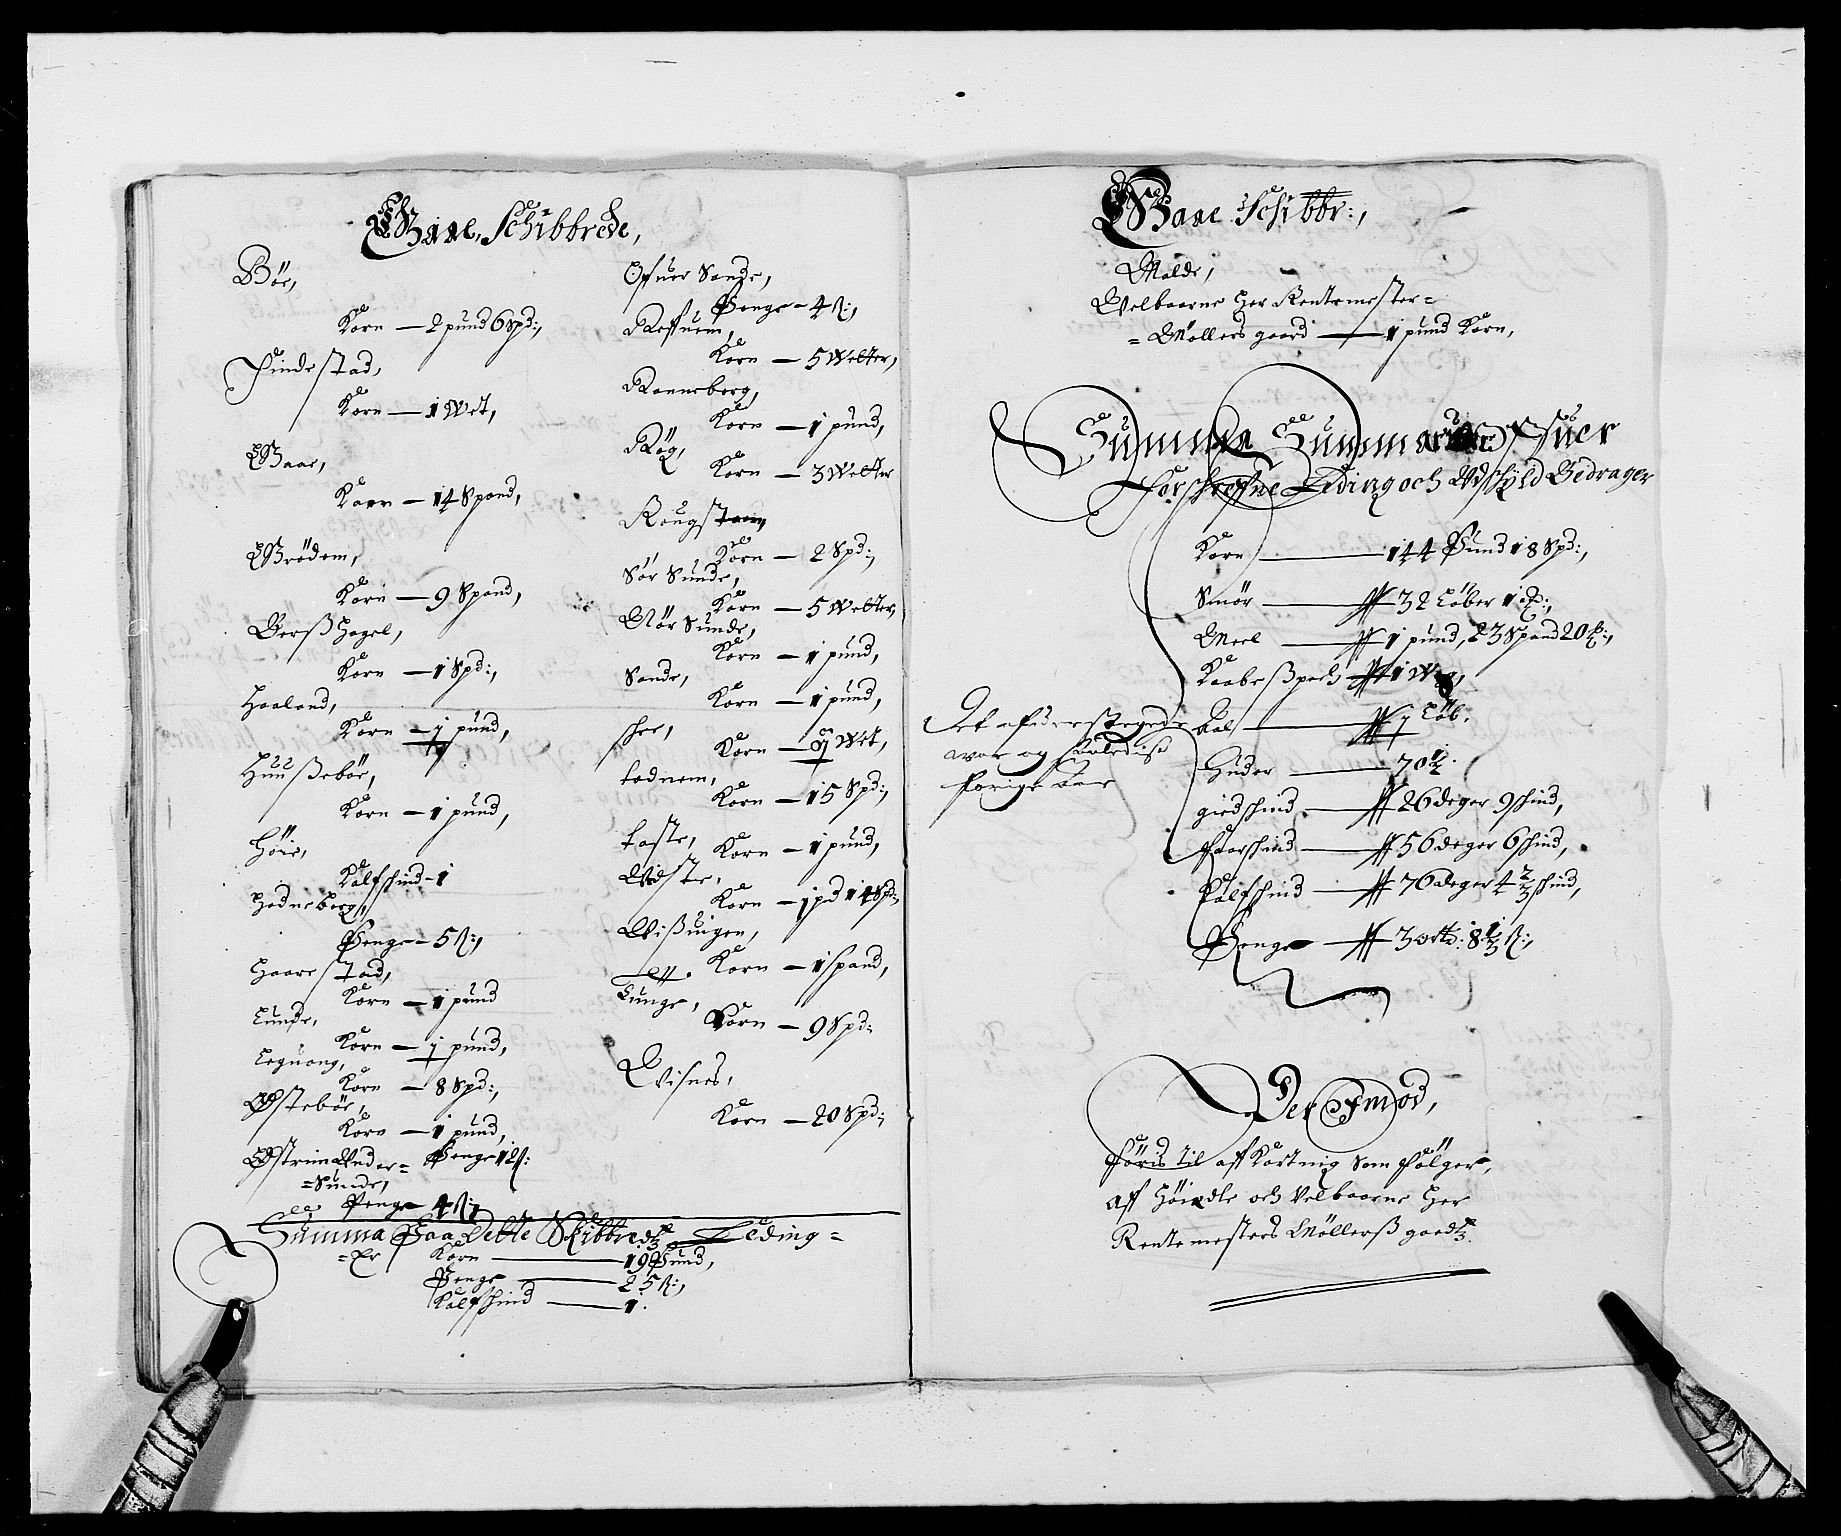 Baae, Schibbrede,
Böe,
Korn — 2 pund 6 Spd:,
Findestad,
Korn — 1 Wet,
Baae,
Korn — 14 Spand,
Brödem,
Korn — 9 Spand,
Gerß hagel,
Korn — 1 Spd:,
Haaland,
Korn — 1 pund,
Huußeböe,
Korn — 1 pund,
Höie,
Kalfskind — 1
Hodneberg,
Penge — 5 ß:,
Haarestad,
Korn — 1 pund
Lunde,
Korn — 1 pund,
Leguang,
Korn — 8 Spd:,
Østeböe,
Korn — 1 pund,
Penge 12 ß:
Østrim Under=
=Sunde,
Penge 4 ß:,
Ofuer Sande,
Penge — 4 ß:,
Refsnem,
Korn — 5 Wetter,
Ranneberg,
Korn — 1 pund,
Røg,
Korn — 3 Wetter
Rougstam
Korn — 2 Spd:,
Sör Sunde,
Korn — 5 Wetter,
Nör Sunde,
Korn — 1 pund,
Sande,
Korn — 1 pund,
Korn — 1 Wet,
todnem,
Korn — 15 Spd:,
taste,
Korn — 1 pund,
Udste,
Korn — 1 pd 14 Spd:
Wißingen,
Korn — 1 Spand,
Tunge,
Korn — 9 Spd:
Visnes,
Korn — 20 Spd:
Summa Paa Dette Skibbredtz Leding=
=Er Korn — 19 Pund,
Penge — 25 ß:,
Kalfskind — 1.
Baae Schibbr:,
Malde,
Velbaarne Her Rentemester=
=Møllers gaard — 1 pund Korn,
Summa Summarum Ofuer
Forschrefne Leding och Udskyld Bedrager
Korn — 144 Pund 18 Spd:,
Smör — 32 Löber 1
Meel — 1 pund, 23 Spand 20
Kaabe — 1 Wog,
Sal — 1 Löb.
Huder — 70 1/2.
giedskind — 26 deger 9 skind,
Faarskind — 56 deger 6 skind,
Kalfskind — 76 deger 4 2/3 skind,
Penge — 3 ortt: 8 1/3 ß:,
war og
forige
Der Imod,
Föris til affkortnig Som følger,
Aff Höiædle och Velbaarne Her
Rentemesters Möllerß goedtz.